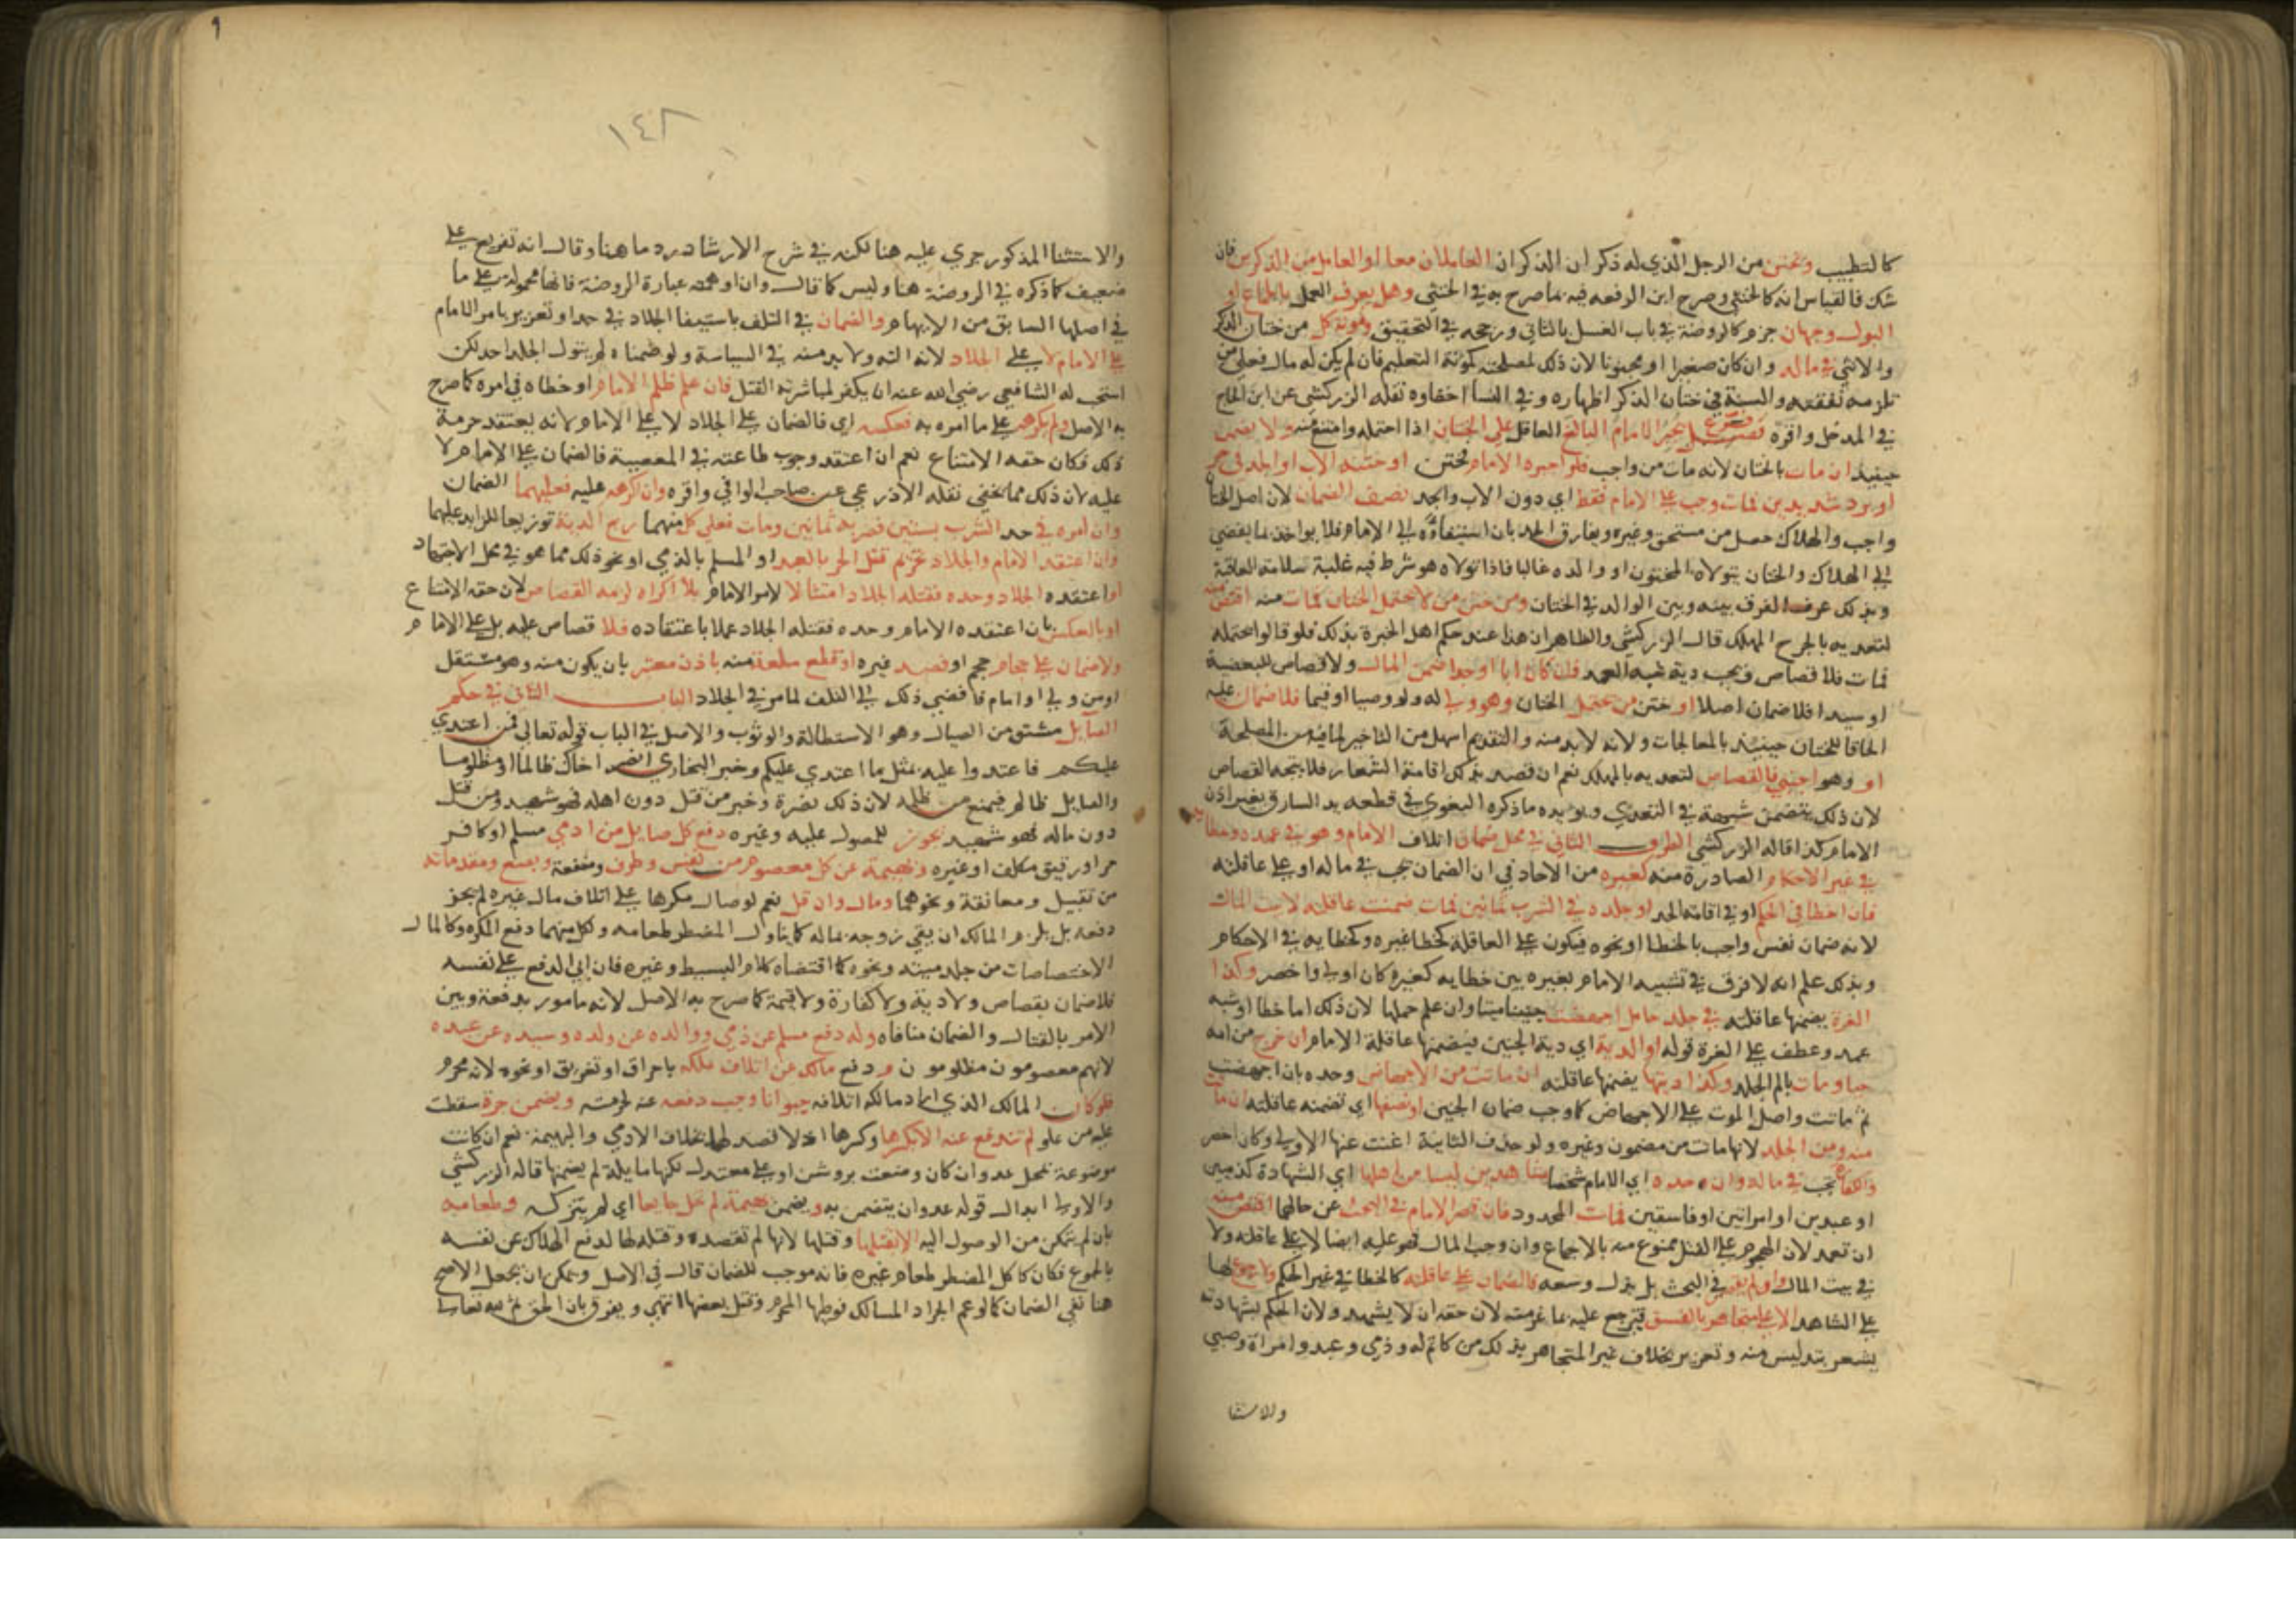 كالتطبيب ويختن من الرجل الذي له ذكران الذكران العاملان معا او العامل من الذكرين فان
شك فالقياس انه كالخنثي وصرح ابن الرفعه فيه بما صرح به في الخنثي وهل يعرف العمل بالجماع او
البول وجهان جزم كالروضة في باب الغسل بالثاني ورجحه في التحقيق ومونة كل من ختان الذكر
والانثي في ماله وان كان صغيرا او مجنونا لان ذلك لمصلحته كمونة التعليم فان لم يكن له مال فعلي من
تلزمه نفقته والسنة في ختان الذكر اظهاره وفي النسا اخفاوه نقله الزركشي عن ابن الحاج
في المدخل واقره فصل يجبر الامام البالغ العاقل علي الختان اذا احتمله وامتنع منه ولا يضمن
حينيد ان مات بالختان لانه مات من واجب فلو اجبره الامام فختن او ختنه الاب او الجد في حر
او برد شديدين فمات وجب علي الامام فقط اي دون الاب والجد نصف الضمان لان اصل الختان
واجب والهلاك حصل من مستحق وغيره ويفارق الحد بان استيفاوه الي الامام فلا يواخذ بما يفضي
الي الهلاك والختان يتولاه المختون او والده غالبا فاذا تولاه هو شرط فيه غلبة سلامة العاقبة
وبذلك عرف الفرق بينه وبين الوالد في الختان ومن ختن من لا يحتمل الختان فمات منه اقتص منه
لتعديه بالجرح المهلك قال الزركشي والظاهر ان هذا عند حكم اهل الخبرة بذلك فلو قالوا يحتمله
فمات فلا قصاص وتجب دية شبه العمد فان كان ابا او جدا ضمن المال ولا قصاص للبعضية
او سيدا فلا ضمان اصلا او ختن من يحتمل الختان وهو ولي له ولو وصيا او قيما فلا ضمان عليه
الحاقا للختان حينيذ بالمعالجات ولانه لا بد منه والتقديم اسهل من التاخير لما فيه من المصلحة
او وهو اجنبي فالقصاص لتعديه بالمهلك نعم ان قصد بذلك اقامة الشعار فلا يتجه القصاص
لان ذلك يتضمن شبهة في التعدي ويويده ما ذكره البغوي في قطعه يد السارق بغير اذن
الامام كذا قاله الزركشي الطرف الثاني في محل ضمان اتلاف الامام وهو في عمده وخطايه
في غير الاحكام الصادرة منه كغيره من الاحاد في ان الضمان يجب في ماله او علي عاقلته
فان اخطا في الحكم او في اقامة الحد او جلده في الشرب ثمانين فمات ضمنت عاقلته لا بيت المال
لانه ضمان نفس واجب بالخطا او نحوه فيكون علي العاقلة كخطا غيره وكخطايه في الاحكام
وبذلك علم انه لا فرق في تشبيه الامام بغيره بين خطايه كغيره كان اولي واخصر وكذا
الغرة يضمنها عاقلته في جلد حامل اجهضت جنينا ميتا وان علم حملها لان ذلك اما خطا او شبه
عمد وعطف علي الغرة قوله او الدية اي دية الجنين فيضمنها عاقلة الامام ان خرج من امه
حيا ومات بالم الجلد وكذا ديتها يضمنها عاقلته ان ماتت من الاجهاض وحده بان اجهضت
ثم ماتت واصل الموت علي الاجهاض كما وجب ضمان الجنين او نصفها اي تضمنه عاقلته ان ماتت
منه ومن الجلد لانها ماتت من مضمون وغيره ولو حذف الثانية اغنت عنها الاولي وكان اخصر
والكفارة تجب في ماله وان حده اي الامام شخصا بشاهدين ليسا من اهلها اي الشهادة كذميين
او عبدين او امراتين او فاسقين فمات المحدود فان قصر الامام في البحث عن حالهما اقتص منه
ان تعمد لان الهجوم علي القتل ممنوع منه بالاجماع وان وجب المال فهو عليه ايضا لا علي عاقلته ولا
في بيت المال او لم يقصر في البحث بل بذل وسعه فالضمان علي عاقلته كالخطا في غير الحكم ولا رجوع لها
علي الشاهد الا علي متجاهر بالفسق فترجع عليه بما غرمته لان حقه ان لا يشهد ولان الحكم بشهادته
يشعر بتدليس منه وتعزير بخلاف غير المتجاهر بذلك من كاتم له وذمي وعبد وامراة وصبي
والاستثنا
١٤٨
والاستثنا المذكور جري عليه هنا لكنه في شرح الارشاد رد ما هنا وقال انه تفريع علي
ضعيف كما ذكره في الروضة هنا وليس كما قال وان اوهمه عبارة الروضة فانها محمولة علي ما
في اصلها السابق من الابهام والضمان في التلف باستيفا الجلاد في حد او تعزير بامر الامام
علي الامام لا علي الجلاد لانه الته ولا بد منه في السياسة ولو ضمناه لم يتول الجلد احد لكن
استحب له الشافعي رضي الله عنه ان يكفر لمباشرته القتل فان علم ظلم الامام او خطاه في امره كما صرح
به الاصل ولم يكرهه علي ما امره به فعكسه اي فالضمان علي الجلاد لا علي الامام لانه يعتقد حرمة
ذلك فكان حقه الامتناع نعم ان اعتقد وجوب طاعته في المعصية فالضمان علي الامام لا
عليه لان ذلك مما يخفي نقله الاذرعي عن صاحب الوافي واقره وان اكرهه عليه فعليهما الضمان
وان امره في حد الشرب بستين فضربه ثمانين ومات فعلي كل منهما ربع الدية توزيعا للزايد عليهما
وان اعتقد الامام والجلاد تحريم قتل الحر بالعبد او المسلم بالذمي او نحو ذلك مما هو في محل الاجتهاد
او اعتقده الجلاد وحده فقتله الجلاد امتثالا لامر الامام بلا اكراه لزمه القصاص لان حقه الامتناع
او بالعكس بان اعتقده الامام وحده فقتله الجلاد عملا باعتقاده فلا قصاص عليه بل علي الامام
ولا ضمان علي حجام حجم او فصد غيره او قطع سلعة منه باذن معتبر بان يكون منه وهو مستقل
او من ولي او امام فافضي ذلك الي التلف لما مر في الجلاد الباب الثاني في حكم
الصايل مشتق من الصيال وهو الاستطالة والوثوب والاصل في الباب قوله تعالي فمن اعتدي
عليكم فاعتدوا عليه بمثل ما اعتدي عليكم وخبر البخاري انصر اخاك ظالما او مظلوما
والصايل ظالم فيمنع من ظلمه لان ذلك نصرة وخبر من قتل دون اهله فهو شهيد ومن قتل
دون ماله فهو شهيد يجوز للمصول عليه وغيره دفع كل صايل من ادمي مسلم او كافر
حر او رقيق مكلف او غيره وبهيمة عن كل معصوم من نفس وطرف ومنفعة وبضع ومقدماته
من تقبيل ومعانقة ونحوهما ومال وان قل نعم لو صال مكرها علي اتلاف مال غيره لم يجز
دفعه بل يلزم المالك ان يقي روحه بماله كما يناول المضطر طعامه ولكل منهما دفع المكره وكالمال
الاختصاصات من جلد ميتة ونحوه كما اقتضاه كلام البسيط وغيره فان ابي الدفع علي نفسه
فلا ضمان بقصاص ولا دية ولا كفارة ولا قيمة كما صرح به الاصل لانه مامور بدفعه وبين
الامر بالقتال والضمان منافاه وله دفع مسلم عن ذمي ووالده عن ولده وسيده عن عبده
لانهم معصومون مظلومون ودفع مالك عن اتلاف ملكه باحراق او تغريق او نحوه لانه محرم
فلو كان المالك الذي اراد مالكه اتلافه حيوانا وجب دفعه عنه لحرمته ويضمن جرة سقطت
عليه من علو لم تندفع عنه الا بكسرها وكسرها اذ لا قصد لها بخلاف الادمي والبهيمة نعم ان كانت
موضوعة بمحل عدوان كان وضعت بروشن او علي معتدل لكنها مايلة لم يضمنها قاله الزركشي
والاولي ابدال قوله عدوان بتضمن به ويضمن بهيمة لم تخل جايعا اي لم يتركه وطعامه
بان لم يتمكن من الوصول اليه الا بقتلها وقتلها لانها لم تقصده وقتله لها لدفع الهلاك عن نفسه
بالجوع فكان كاكل المضطر طعام غيره فانه موجب للضمان قال في الاصل ويمكن ان يجعل الاصح
هنا نفي الضمان كما لو عم الجراد المسالك فوطيها المحرم وقتل بعضها انتهي ويفرق بان الحق ثم لله تعالي